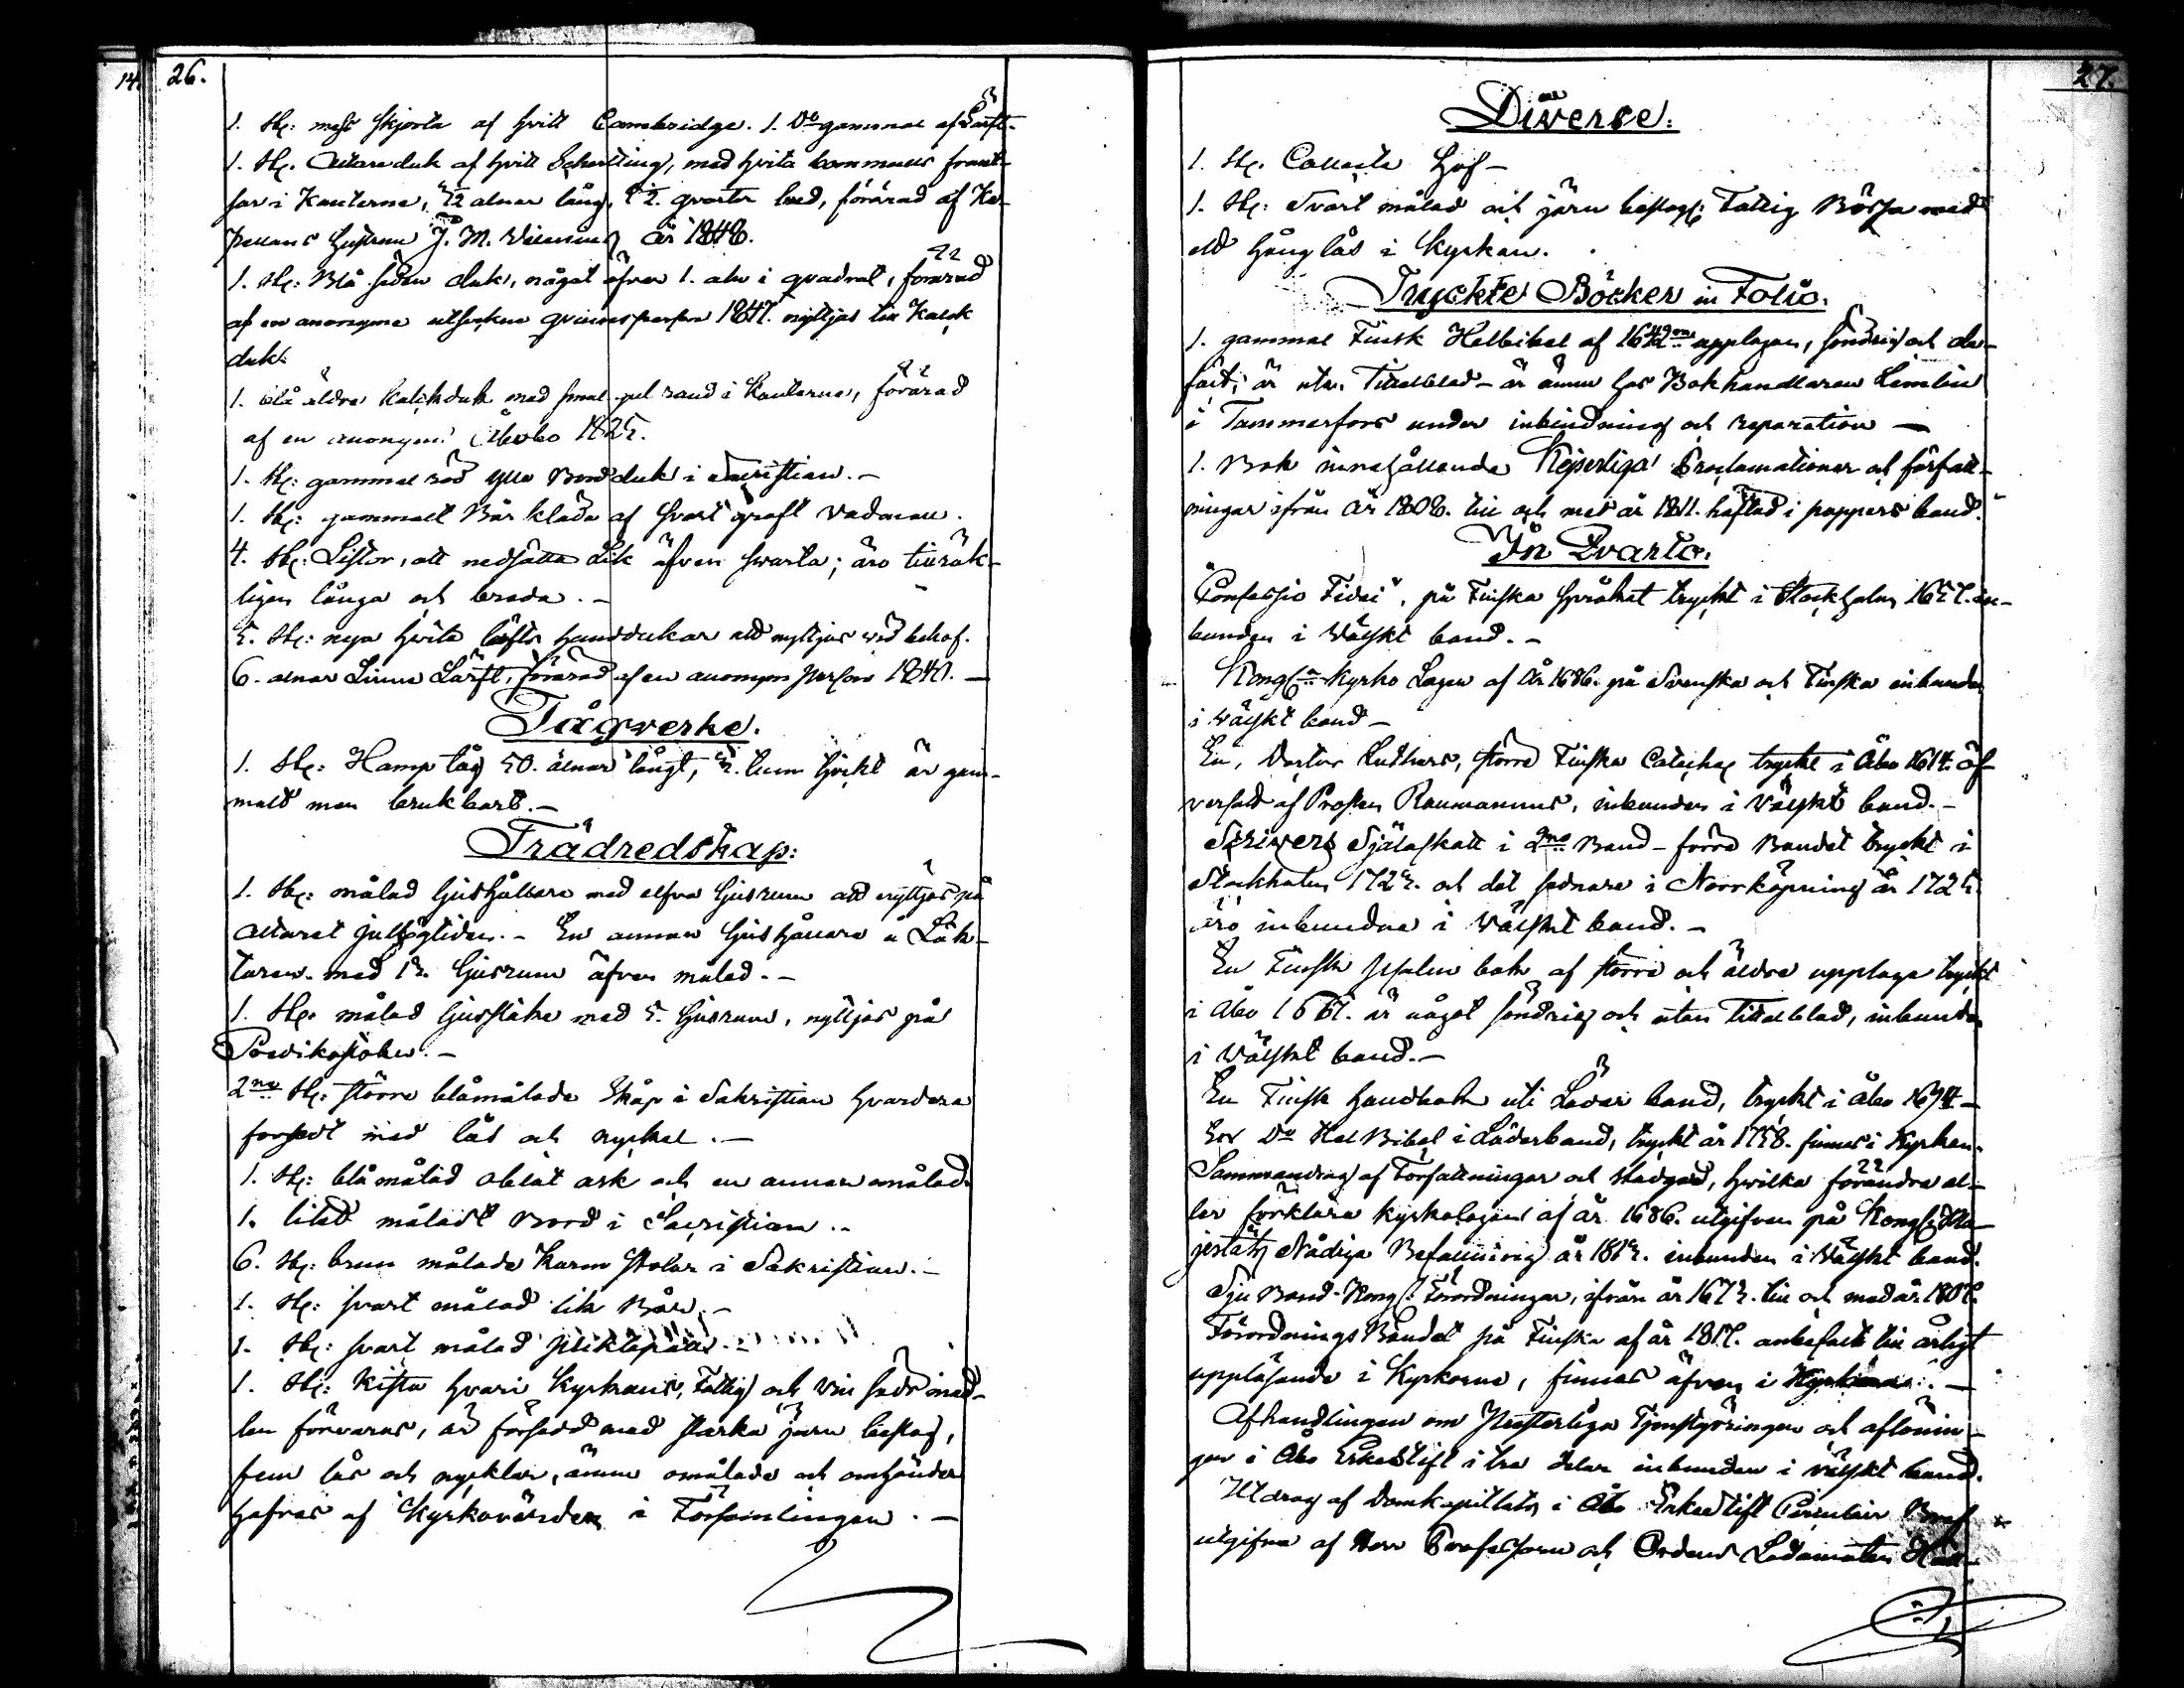 14.
26.
1. St: mess skjorta af hvitt Cambridge. 1. D:o gammal af Lärft.
1. St. Altareduk af hvitt Scherting, med hvita bommulls frant-
sar i kanterne, alnar lång, qvarter bred, förärad af Ka-
pellans hustrun J. M. år 1848.
1. St: Blå siden duk, något öfver 1. aln i qvadrat, förärad
af en anonyme qvinnsperson 1847. nyttjas till Kalk
duk.
1. blå äldre Kalkduk med smal gul rand i kanterne, förärad
af en anonym 1825.
1. St: gammal röd ylle Bordduk i Sacristian. –
1. St: gammalt Bår kläde af svart groft vadmal.
4. St: Listor, att nedsätta Lik äfven svarta; äro tillräk-
ligen långa och breda. –
5. St: nya hvita lärfts handdukar att nyttjas vid behof.
6. alnar Linne Lärft, förärad af en anonym person 1840. –
Tågverke.
1. St: Hamp tåg 50. alnar långt, tum tjockt är gam-
malt men brukbart. –
Trädredskap:
1. St: målad ljushållare med elfva ljusrum att nyttjas på
Altaret julhögtiden. – En annan ljushållare å Läk-
taren med 12. ljusrum äfven målad. –
1. St. målad ljusstake med 5. ljusrum, nyttjas på
Predikostolen. –
2:ne St: större blåmålade Skåp i Sakristian hvardera
försedt med lås och nyckel. –
1. St: blåmålad oblat ask och en annan omålad.
1. litet måladt Bord i Sacristian. –
6. St: brun målade Karm stolar i Sakristian. –
1. St: svart målad lik Bår. –
1. St: svart målad pliktapall. –
1. St: Kista hvari Kyrkans, Fattig och Vin sads med-
len förvaras, är försedd med starka järn beslag,
fem lås och nycklar, ännu omålade och omhänder
hafvas af Kyrkovärden i Församlingen. –
27.
Diverse:
1. St. Collecte Hof –
1. St: Svart målad och järn beslag: Fattig Bössa med
ett hänglås i Kyrkan.
Tryckte Böcker in Folio.
1. gammal Finsk Helbibel af 1642 upplagan, söndrig och de-
fect, är utan Titelblad – är ännu hos Bokhandlaren
i Tammerfors under inbindning och reparation –
1. Bok innehållande Kejserliga Proclamationer och författ-
ningar ifrån år 1808. till och med år 1811. häftad i pappers band.
In Qvarto.
"Confessio Fidei", på Finska språket tryckt i Stockholm in-
bunden i Wälskt band. –
Kongl. Kyrko Lagen af år 1686. på Svenska och Finska inbunden
i Wälskt band –
En, Doctor Luthers, större Finska Cateches tryckt i Åbo öf-
versatt af Prosten Raumannus, inbunden i Wälskt band. –
Scrivers Själaskatt i 2:ne Band – förra Bandet tryckt i
Stockholm och det sednare i Norrköping år
äro inbundna i Wälskt band. –
En Finsk psalm bok af större och äldre upplaga tryckt
i Åbo är något söndrig och utan Titelblad, inbunden
i Wälskt band. –
En Finsk handbok uti Läder band, tryckt i Åbo 1694 –
En D:o Hel Bibel i Läderband, tryckt år 1758. finnes i Kyrkan.
Sammandrag af Författningar och stadgar, hvilka förändra el-
ler förklara kyrkolagen af år 1686. utgifven på Kongl. Ma-
jestäts Nådiga Befallning år inbunden i Wälskt band.
Sju Band Kongl. Förordningar, ifrån år till och med år
Förordnings Bandet på Finska af år anbefallt till årligt
uppläsande i Kyrkorne, finnes äfven i Kyrkan. –
Afhandlingen om Presterliga Tjenstgöringen och aflönin-
gen i Åbo Erkestift i tre delar inbunden i wälskt band.
Utdrag af Domkapitlets i Åbo Erkestift Circulair Bref
utgifne af Herr Professorn och Ordens Ledamoten